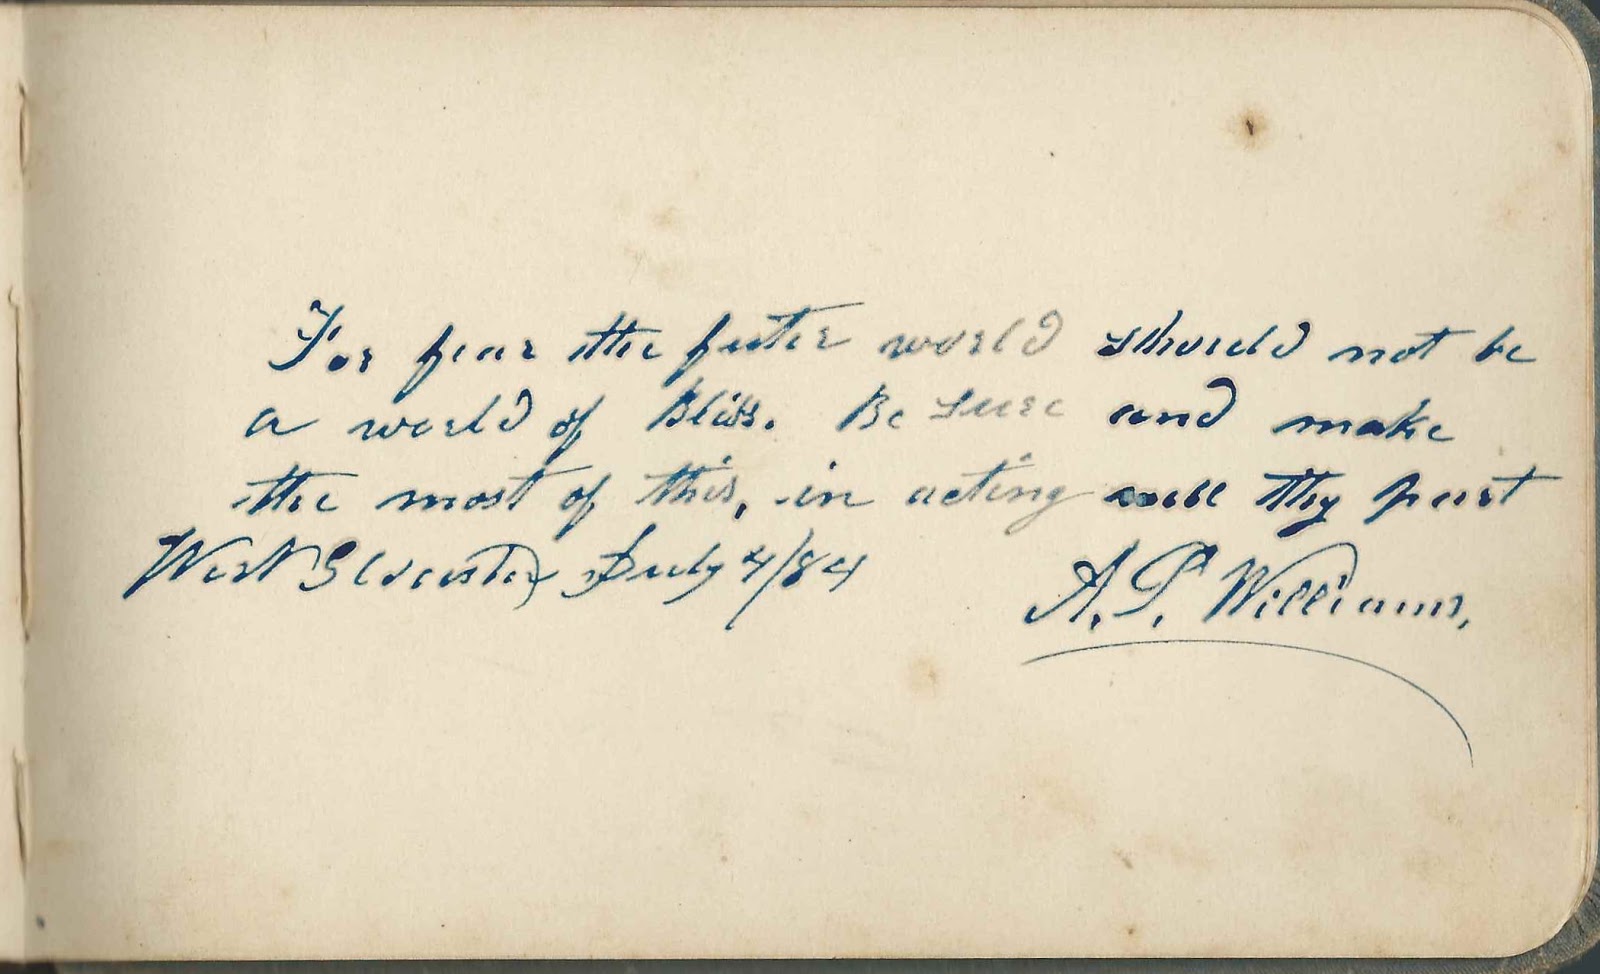 For fear the futer world should not be
a world of Bliss. Be sure and make
the most of this, in acting well thy part
West Glocester, July 4/84
A. P. Williams.